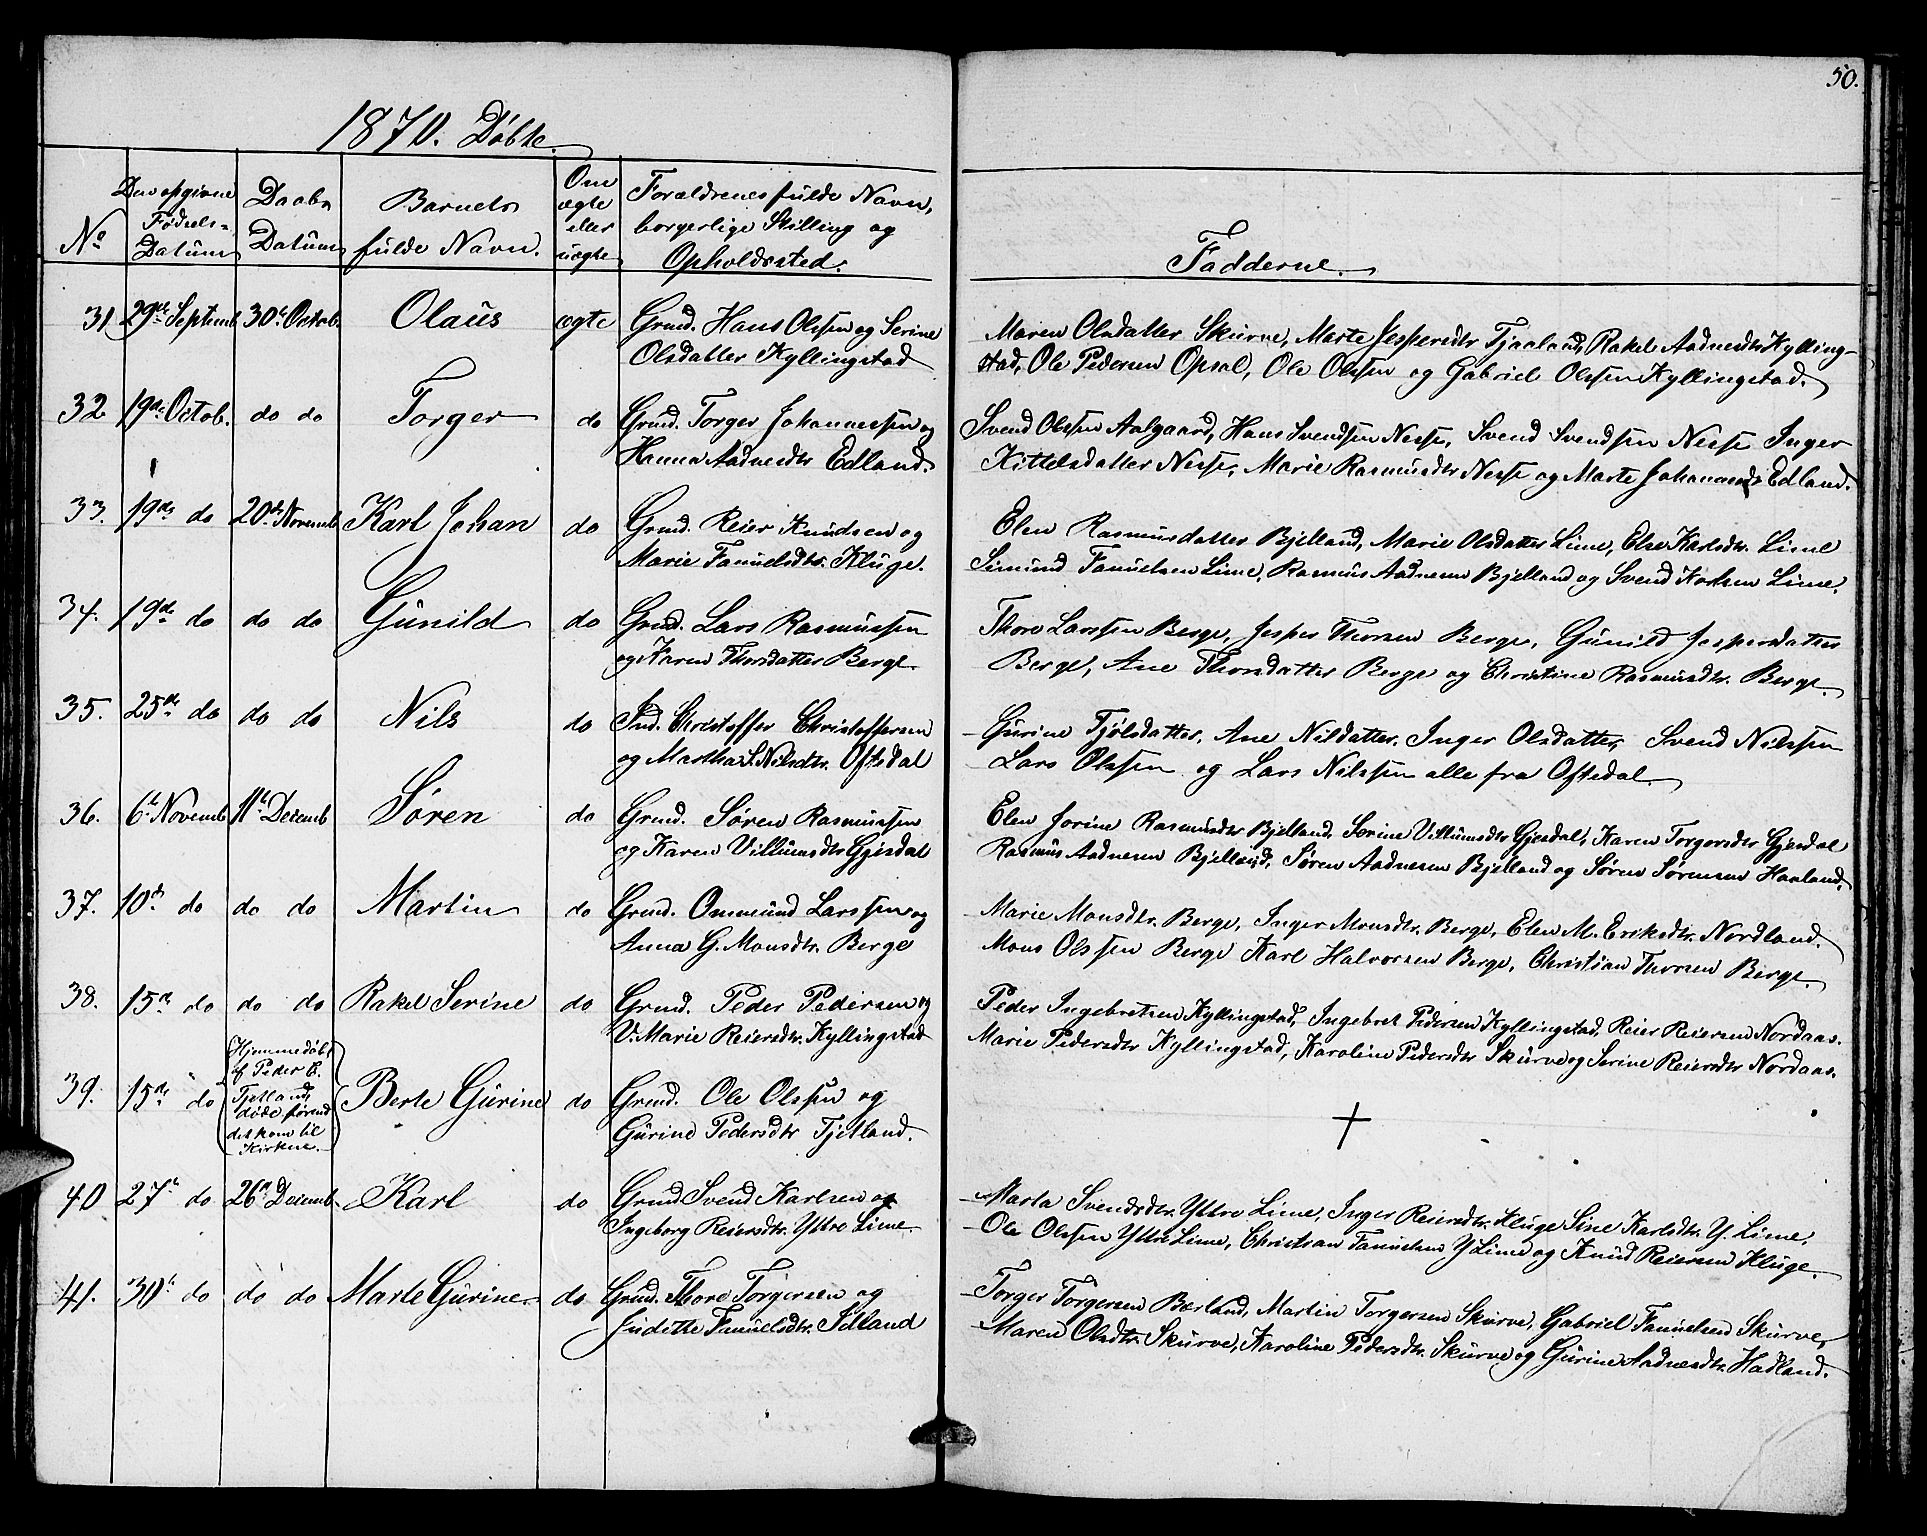 50.
1870. Døbte.
No
Den opgivne
Fødsels-
Datum
Daabs
Datum
Barnets
fulde Navn.
Om
ægte
eller
uægte
Forældrenes fulde Navn,
borgerlige Stilling og
Opholdssted.
Fadderne.
31 29de Septemb 30te Octob. Olaus ægte Grmd. Hans Olssen og Serine
Olsdatter Kyllingstad
Maren Olsdatter Skurve, Marte Jespersdtr Tjaaland, Rakel Aadnesdtr Kylling-
stad, Ole Pedersen Opsal, Ole Olssen og Gabriel Olssen Kyllingstad.
32 19de Octob. do do Torger do Grmd. Torger Johannessen og
Hanna Aadnesdtr Edland.
Svend Olssen Aalgaard, Hans Svendsen Nesse, Svend Svendsen Nesse Inger
Kittelsdatter Nesse, Marie Rasmusdtr Nesse og Marte Johannesdtr Edland.
33. 19de do 20de Novemb Karl Johan do Grmd. Reier Knudsen og
Marie Fanuelsdtr. Kluge.
Elen Rasmusdatter Bjelland, Marie Olsdatter Lime, Else Karlsdtr. Lime
Simund Fanuelsen Lime, Rasmus Aadnesen Bjelland og Svend Karlsen Lime.
34. 19de do do do Gunild do Grmd. Lars Rasmussen
og Karen Thorsdatter Berge.
Thore Larssen Berge, Jesper Thorsen Berge, Gunild Jespersdatter
Berge, Ane Thorsdatter Berge og Christine Rasmusdtr. Berge.
35. 25de do do do Nils do Ind. Christoffer Christoffersen
og Martha S. Nilsdtr. Oftedal
Gurine Tjølsdatter, Ane Nilsdatter, Inger Olsdatter, Svend Nilssen
Lars Olssen og Lars Nilssen alle fra Oftedal.
36. 6te Novemb 11te Decemb Søren do Grmd. Søren Rasmussen
og Karen Villumsdtr Gjesdal
Elen Jorine Rasmusdtr Bjelland, Serine Villumsdtr Gjesdal, Karen Torgersdtr Gjesdal
Rasmus Aadnesen Bjelland, Søren Aadnesen Bjelland og Søren Sørensen Haaland.
37. 10de do do do Martin do Grmd. Ommund Larssen og
Anna G. Monsdtr. Berge
Marie Monsdtr. Berge, Inger Monsdtr. Berge, Elen M. Eriksdtr. Nordland.
Mons Olssen Berge Karl Halvorsen Berge, Christian Thorsen Berge.
38. 15de do do do Rakel Serine do Grmd. Peder Pedersen og
V. Marie Reiersdtr. Kyllingstad
Peder Ingebretsen Kyllingstad, Ingebret Pedersen Kyllingstad, Reier Reiersen Nordaas.
Marie Pedersdtr Kyllingstad, Karoline Pedersdtr Skurve og Serine Reiersdtr Nordaas.
39. 15de do
Hjemmedøbt
af Peder E.
Tjetland,
døde førend
det kom til
Kirken.
Berte Gurine do Grmd. Ole Olssen og
Gurine Pedersdtr Tjetland.
40 27de do 26de Decemb. Karl do Grmd Svend Karlsen og
Ingeborg Reiersdtr. Yttre Lime.
Marta Svendsdtr. Yttre Lime, Inger Reiersdtr. Kluge Sine Karlsdtr. Y. Lime.
Ole Olssen Yttre Lime, Christian Fanuelsen Y Lime og Knud Reiersen Kluge.
41. 30te do do do Marte Gurine do Grmd. Thore Torgersen og
Judithe Fanuelsdtr. Edland
Torger Torgersen Bærland, Martin Torgersen Skurve, Gabriel Fanuelsen Skurve,
Maren Olsdtr. Skurve, Karoline Pedersdtr. Skurve og Gurine Aadnesdtr. Hadland.